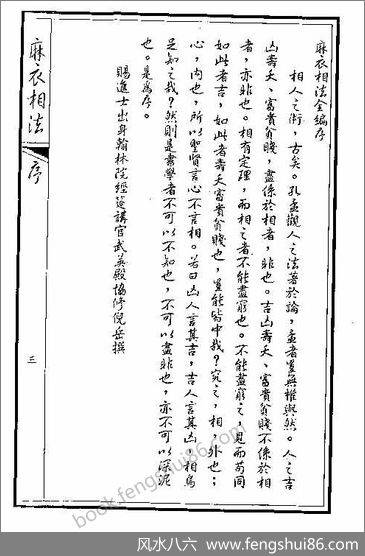 麻衣相法全編序
相人之術，古矣。孔孟觀人之法著於論，孟者豈無權輿然。人之吉
凶壽夭、富貴貧賤，盡係於相者，非也。吉凶壽夭、富貴貧賤不係於相
者，亦非也。相有定理，而相之者不能盡窮也。不能盡窮之，見而苟同
如此者吉，如此者壽夭富貴貧賤也，豈能皆中哉？究之，相，外也；
心，內也，所以聖賢言心不言相。若曰凶人言其吉，吉人言其凶，相烏
足知之哉？然則是書學者不可以不知也，不可以盡非也，亦不可以深泥
也。是為序。
賜進士出身翰林院經筵講官武英殿協修倪岳撰
麻衣相法
序
三
book.fengshui86.com
风水八六 www.fengshui86.com